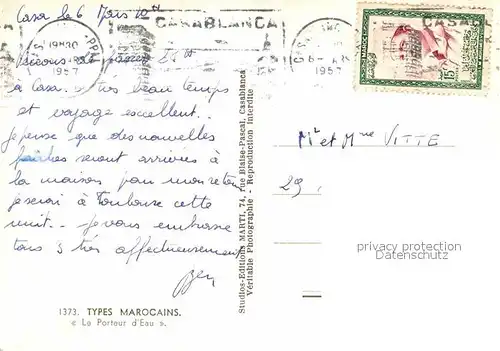 Casa le 6 Mars 10H
CASABLANCA
19H30
1957
1957
CASA
MAROC
15
à Casa. Très beau temps
et voyage excellent.
Je pense que des nouvelles
fraîches seront arrivées à
la maison pour mon retour
je serai à Toulouse cette
nuit. Je vous embrasse
tous 3 très affectueusement
Mr et Mme VITTE
29.
privacy protection
Datenschutz
Studios-Editions MARTI, 74, rue Blaise-Pascal, Casablanca
Véritable Photographie - Reproduction Interdite
1373. TYPES MAROCAINS.
« Le Porteur d'Eau ».